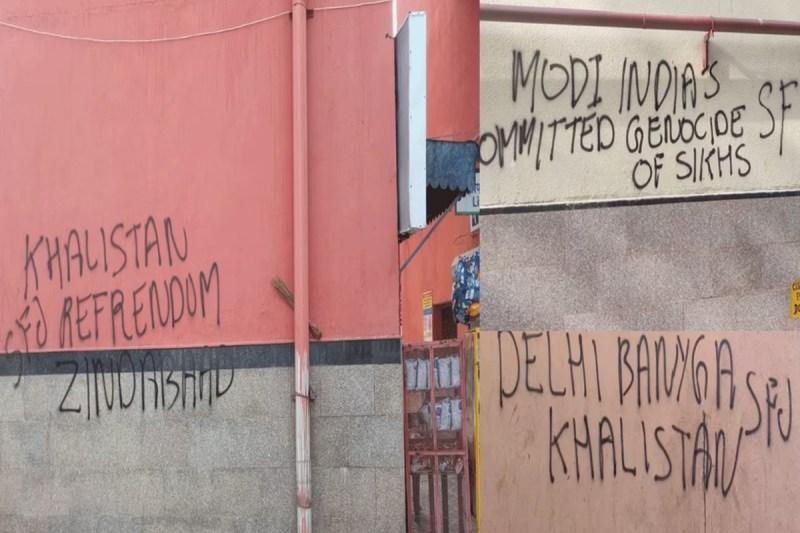 KHALISTAN
SFJ REFRENDUM
ZINDABAAD
MODI INDIA'S
OMMITTED GENOCIDE SF
OF SIKHS
DELHI BANYGA
KHALISTAN SFJ